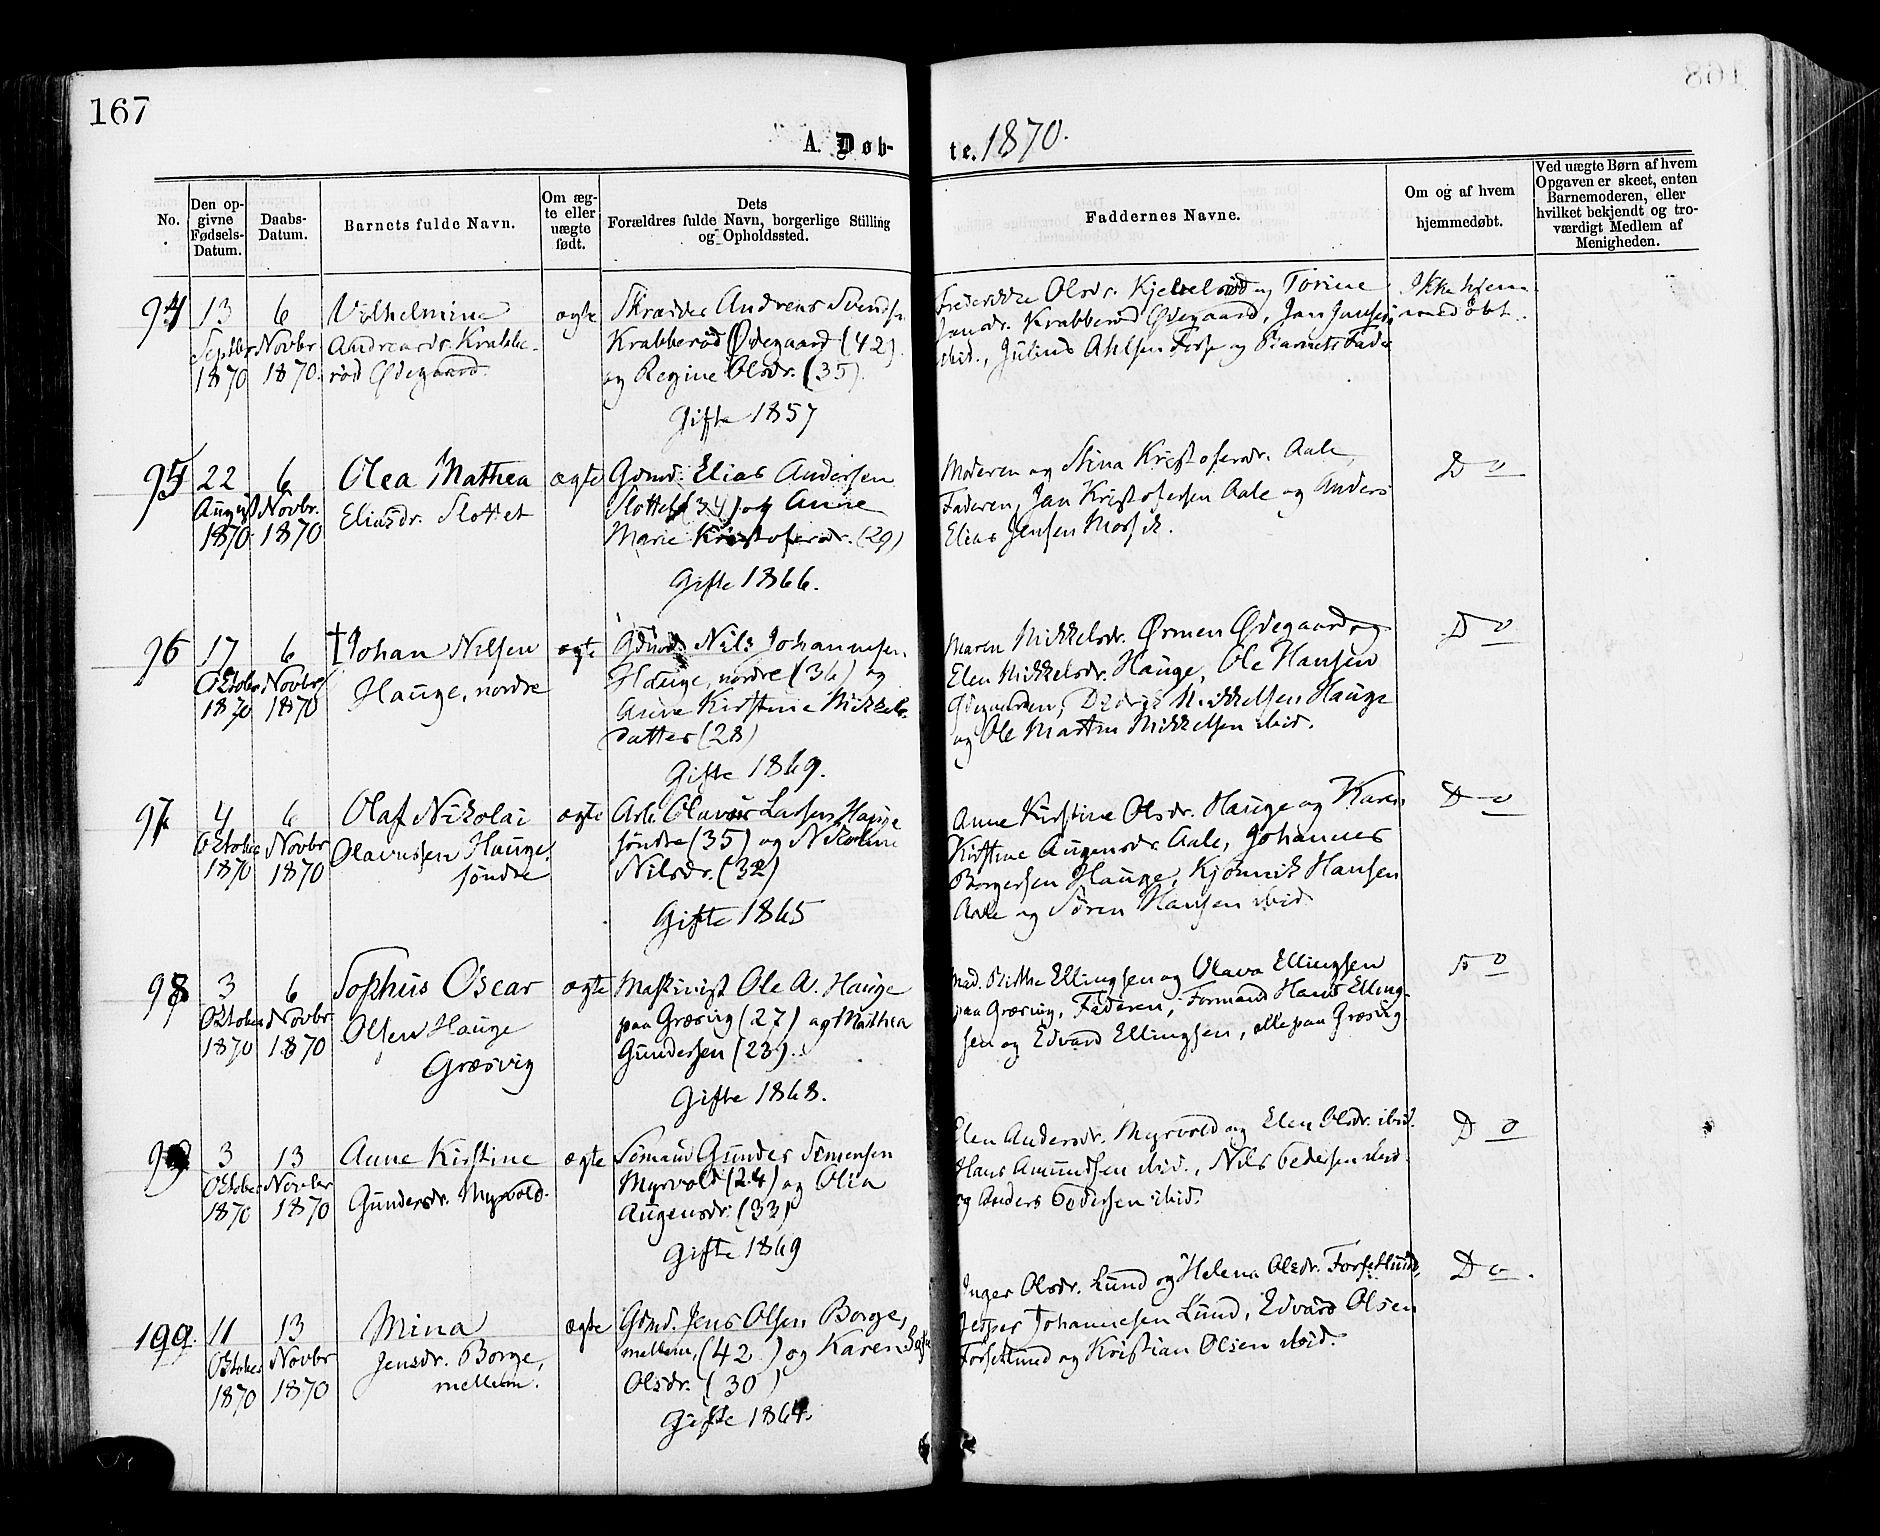 167
168
A. Døb-
te. 1870.
No.
Den op-
givne
Fødsels-
Datum.
Daabs-
Datum.
Barnets fulde Navn.
Om æg-
te eller
uægte
født.
Dets
Forældres fulde Navn, borgerlige Stilling
og Opholdssted.
Faddernes Navne.
Om og af hvem
hjemmedøbt.
Ved uægte Børn af hvem
Opgaven er skeet, enten
Barnemoderen, eller
hvilket bekjendt og tro-
værdigt Medlem af
Menigheden.
94
13
Septbr
1870
6
Novbr
1870.
Vilhelmine
Andreasdr. Krabbe-
rød Ødegaard.
ægte
Skrædder Andreas Svends.
Krabberød Ødegaard (42)
og Regine Olsdr. (35).
Gifte 1857
Frederikke Olsdr. Kjelelsrød og Torine
Jansdr. Krabberød Ødegaard, Jan Jansen
ibid., Julius Ahlsen Forse og Barnets Fader
Ikke hjem-
medøbt.
95
22
August
1870
6
Novbr.
1870
Olea Mathea
Eliasdr. Slottet
ægte
Gdmd. Elias Andersen
Slottet (34) og Anne
Marie Kristofersdr. (29)
Gifte 1866.
Moderen og Stina Kristofersdr. Aale,
Faderen, Jan Kristofersen Aale og Anders
Elias Jensen
Do
96
17
Oktober
1870
6
Novbr
1870
† Johan Nilsen
Hauge, nordre
ægte
Gdmd. Nils Johannesen
Hauge, nordre (36) og
Anne Kirstine Mikkels-
datter (28)
Gifte 1869.
Maren Mikkelsdr. Ørmen Ødegaard og
Elen Mikkelsdr. Hauge, Ole Hansen
Ødegaarden, Didrik Mikkelsen Hauge
og Ole Martin Mikkelsen ibid.
Do
97
4
Oktober
1870
6
Novbr
1870
Olaf Nikolai
Olavussen Hauge,
søndre
ægte
Arb. Olavus Larsen Hauge
søndre (35) og Nikoline
Nilsdr. (32)
Gifte 1865
Anne Kirstine Olsdr. Hauge og Karen
Kirstine Augensdr. Aale, Johannes
Borgersen Hauge, Kjønnik Hansen
Aale og Søren Hansen ibid.
Do
98
3
Oktober
1870
6
Novbr
1870
Sophus Oscar
Olsen Hauge
Græsvig
ægte
Maskinist Ole A. Hauge
paa Græsvig (27) og Mathea
Gundersen (23).
Gifte 1868.
Mad. Birthe Ellingsen og Olava Ellingsen
paa Græsvig, Faderen, Formand Hans Elling-
sen og Edvard Ellingsen, alle paa Græsvig
Do
99
3
Oktober
1870
13
Novber
1870
Anne Kirstine
Gundersdr. Myrvold.
ægte
Sømand Gunder Simensen
Myrvold (24) og Olia
Augensdr. (33)
Gifte 1869
Elen Andersdr. Myrvold og Elen Olsdr. ibid.
Hans Amundsen ibid., Nils Pedersen ibid.
og Anders Pedersen ibid.
Do
100.
11
Oktober
1870
13
Novbr
1870
Mina
Jensdr. Borge,
mellem.
ægte
Gdmd. Jens Olsen Borge,
mellem, (42) og Karen
Olsdr. (30)
Gifte 1864.
Inger Olsdr. Lund og Helena Olsdr. Forsetlund,
Jesper Johannesen Lund, Edvard Olsen
Forsetlund og Kristian Olsen ibid.
Do.